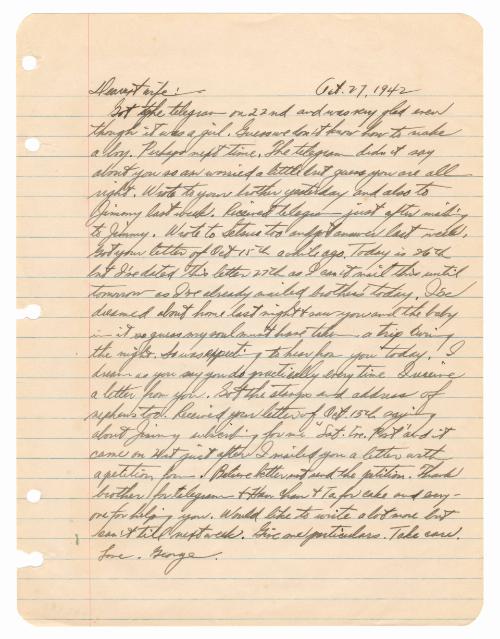 Dearest wife: - Oct. 27, 1942
Got the telegram on 22nd and was very glad even
though it was a girl. Guess we don't know how to make
a boy. Perhaps next time. The telegram didn't say
about you so am worried a little but guess you are all
right. Wrote to your brother yesterday and also to
Jimmy last week. Received telegram just after mailing
to Jimmy. Wrote to too and got answer last week.
Got your letter of Oct 15th a while ago. Today is 26th
but I've dated this letter 27th as I can't mail this until
tomorrow as I've already mailed brother's today. I
dreamed about home last night & saw you and the baby
in it so guess my soul must have taken a trip during
the night. So was expecting to hear from you today. I
dream as you say you do practically every time I receive
a letter from you. Got the stamps and address of
nephews too. Received your letter of Oct. 15th saying
about Jimmy subscribing for me "Sat. Eve. Post" and it
came on 24th just after I mailed you a letter with
a petition form. Believe better not send the petition. Thank
brother for telegram & & for cake and every-
one for helping you. Would like to write a lot more but
can't till next week. Give me particulars. Take care.
Love, George.